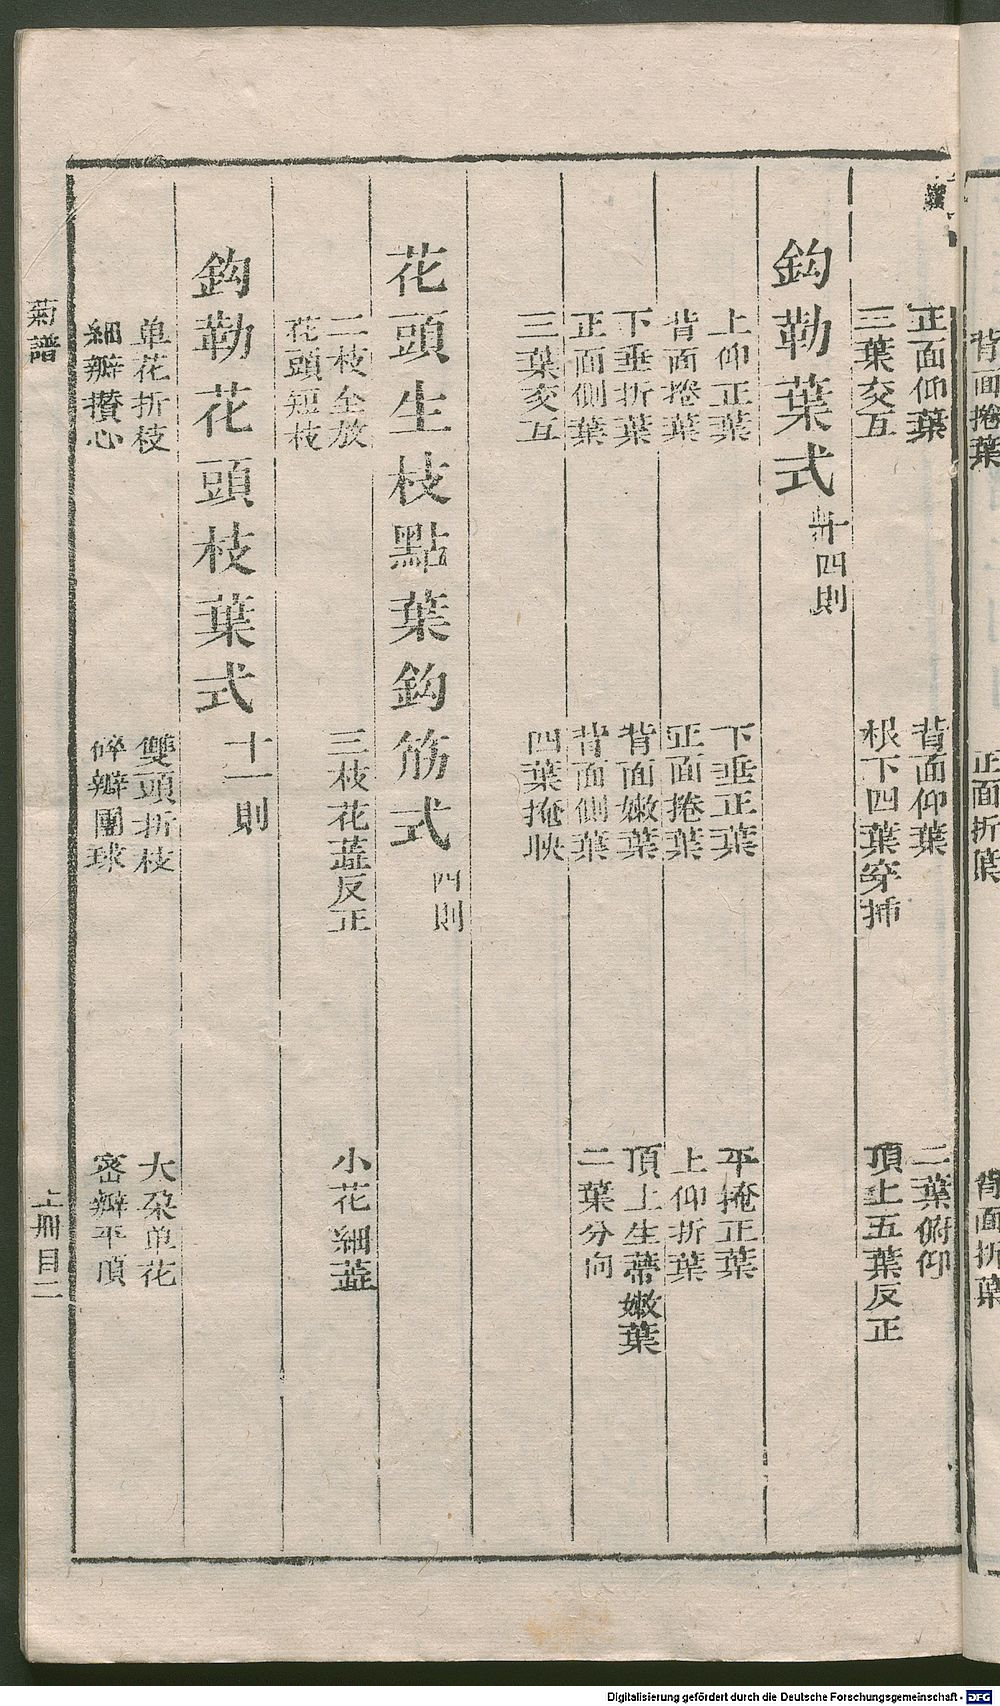 背面捲葉　正面折葉　背面折葉
正面仰葉　背面仰葉　二葉俯仰
三葉交互　根下四葉穿揷　頂上五葉反正
鈎勒葉式　十四則
上仰正葉　下垂正葉　平掩正葉
背面捲葉　正面捲葉　上仰折葉
下垂折葉　背面嫩葉　頂上生蒂嫩葉
正面側葉　背面側葉　二葉分向
三葉交互　四葉掩映
花頭生枝點葉鈎筋式　四則
二枝全放　三枝花蕋反正　小花細蕋
花頭短枝
鈎勒花頭枝葉式　十一則
单花折枝　雙頭折枝　大朶单花
細瓣攅心　碎瓣團球　密瓣平頂
菊譜　上冊目二
Digitalisierung gefördert durch die Deutsche Forschungsgemeinschaft - DFG